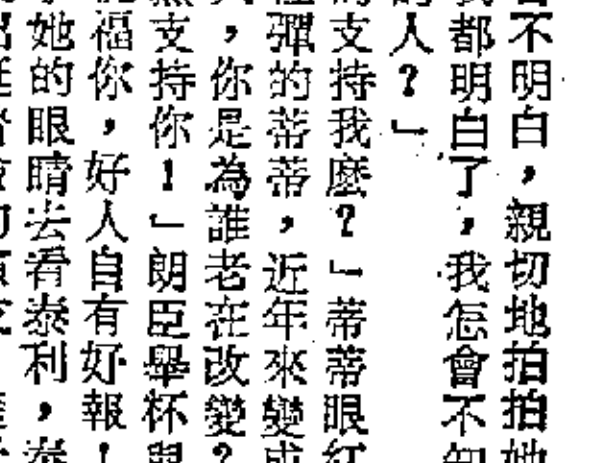 不明白，親切地拍拍她
都明白了，我怎會不知
人？」
支持我麼？」蒂蒂眼紅
彈的蒂蒂，近年來變成
，你是為誰老在改變？
支持你！」朗臣舉杯與
福你，好人自有好報！
她的眼睛去看泰利，泰